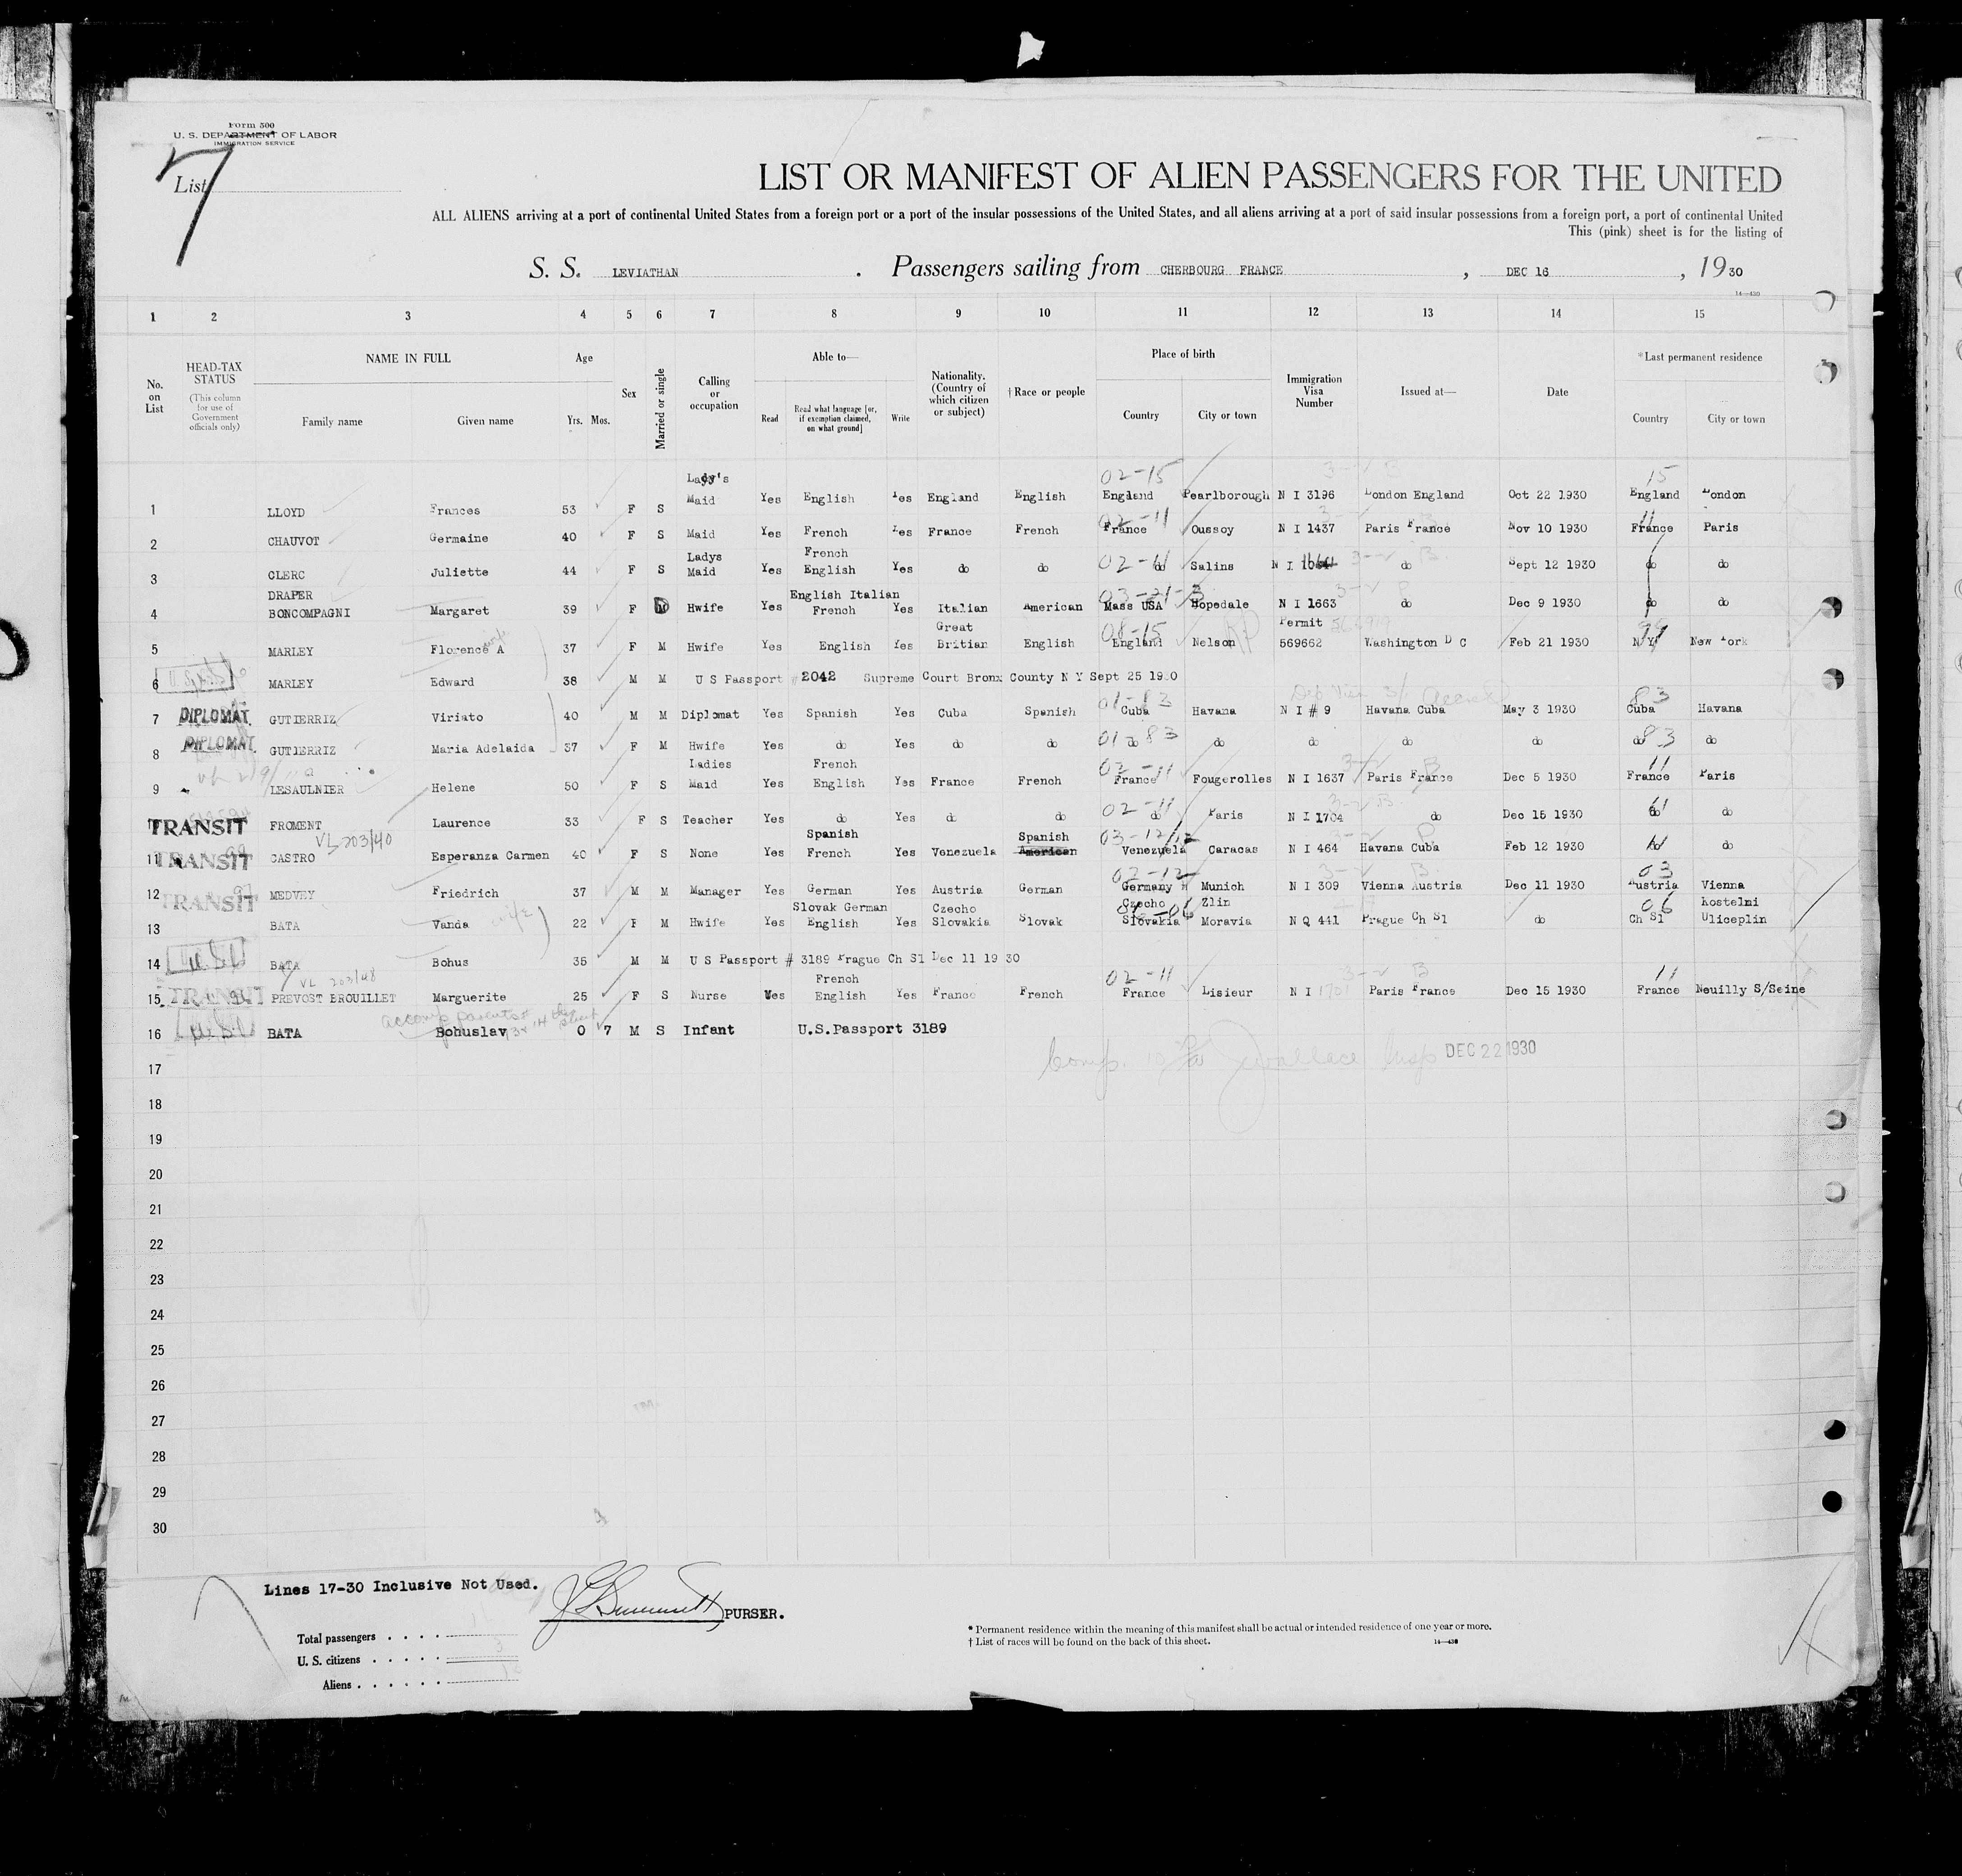 Form 500
U. S. DEPARTMENT OF LABOR
IMMIGRATION SERVICE
List 7
LIST OR MANIFEST OF ALIEN PASSENGERS FOR THE UNITED
ALL ALIENS arriving at a port of continental United States from a foreign port or a port of the insular possessions of the United States, and all aliens arriving at a port of said insular possessions from a foreign port, a port of continental United
This (pink) sheet is for the listing of
S. S. LEVIATHAN . Passengers sailing from CHERBOURG FRANCE , DEC 16 , 1930
14—430
1 2 3 4 5 6 7 8 9 10 11 12 13 14 15
No. on List
HEAD-TAX STATUS (This column for use of Government officials only)
NAME IN FULL Family name Given name
Age Yrs. Mos.
Sex
Married or single
Calling or occupation
Able to— Read Read what language [or, if exemption claimed, on what ground] Write
Nationality. (Country of which citizen or subject)
† Race or people
Place of birth Country City or town
Immigration Visa Number
Issued at—
Date
* Last permanent residence Country City or town
02-15 15
1 LLOYD Frances 53 F S Lady's Maid Yes English Yes England English England Pearlborough N I 3196 London England Oct 22 1930 England London
02-11 11
2 CHAUVOT Germaine 40 F S Maid Yes French Yes France French France Oussoy N I 1437 Paris France Nov 10 1930 France Paris
02-11
3 CLERC Juliette 44 F S Ladys Maid Yes French English Yes do do do Salins N I do Sept 12 1930 do do
03-21-3
4 DRAPER BONCOMPAGNI Margaret 39 F Hwife Yes English Italian French Yes Italian American Mass USA Hopedale N I 1663 do Dec 9 1930 do do
08-15 99
5 MARLEY Florence A wife 37 F M Hwife Yes English Yes Great Britian English England Nelson Permit 569662 Washington D C Feb 21 1930 N Y New York
6 MARLEY Edward 38 M M U S Passport # 2042 Supreme Court Bronx County N Y Sept 25 1930
01-83 83
7 DIPLOMAT GUTIERRIZ Viriato 40 M M Diplomat Yes Spanish Yes Cuba Spanish Cuba Havana N I # 9 Havana Cuba May 3 1930 Cuba Havana
01 83 83
8 DIPLOMAT GUTIERRIZ Maria Adelaida 37 F M Hwife Yes do Yes do do do do do do do do do
02-11 11
9 LESAULNIER Helene 50 F S Ladies Maid Yes French English Yes France French France Fougerolles N I 1637 Paris France Dec 5 1930 France Paris
02-11
10 TRANSIT FROMENT Laurence 33 F S Teacher Yes do Yes do do do Paris N I 1704 do Dec 15 1930 do do
VL-203/40 03-12
11 TRANSIT CASTRO Esperanza Carmen 40 F S None Yes Spanish French Yes Venezuela Spanish American Venezuela Caracas N I 464 Havana Cuba Feb 12 1930 do
02-12 03
12 TRANSIT MEDVEY Friedrich 37 M M Manager Yes German Yes Austria German Germany Munich N I 309 Vienna Austria Dec 11 1930 Austria Vienna
06
13 BATA Vanda wife 22 F M Hwife Yes Slovak German English Yes Czecho Slovakia Slovak Czecho Slovakia Zlin Moravia N Q 441 Prague Ch Sl do Ch Sl Kostelni Uliceplin
14 BATA Bohus 35 M M U S Passport # 3189 Prague Ch Sl Dec 11 19 30
VL 203/48 02-11 11
15 TRANSIT PREVOST BROUILLET Marguerite 25 F S Nurse Yes French English Yes France French France Lisieur N I Paris France Dec 15 1930 France Neuilly S/Seine
16 BATA Bohuslav 0 7 M S Infant U.S.Passport 3189
DEC 22 1930
17
18
19
20
21
22
23
24
25
26
27
28
29
30
Lines 17-30 Inclusive Not Used.
PURSER.
Total passengers . . . .
U. S. citizens . . . . .
Aliens . . . . . .
* Permanent residence within the meaning of this manifest shall be actual or intended residence of one year or more.
† List of races will be found on the back of this sheet.
14—430